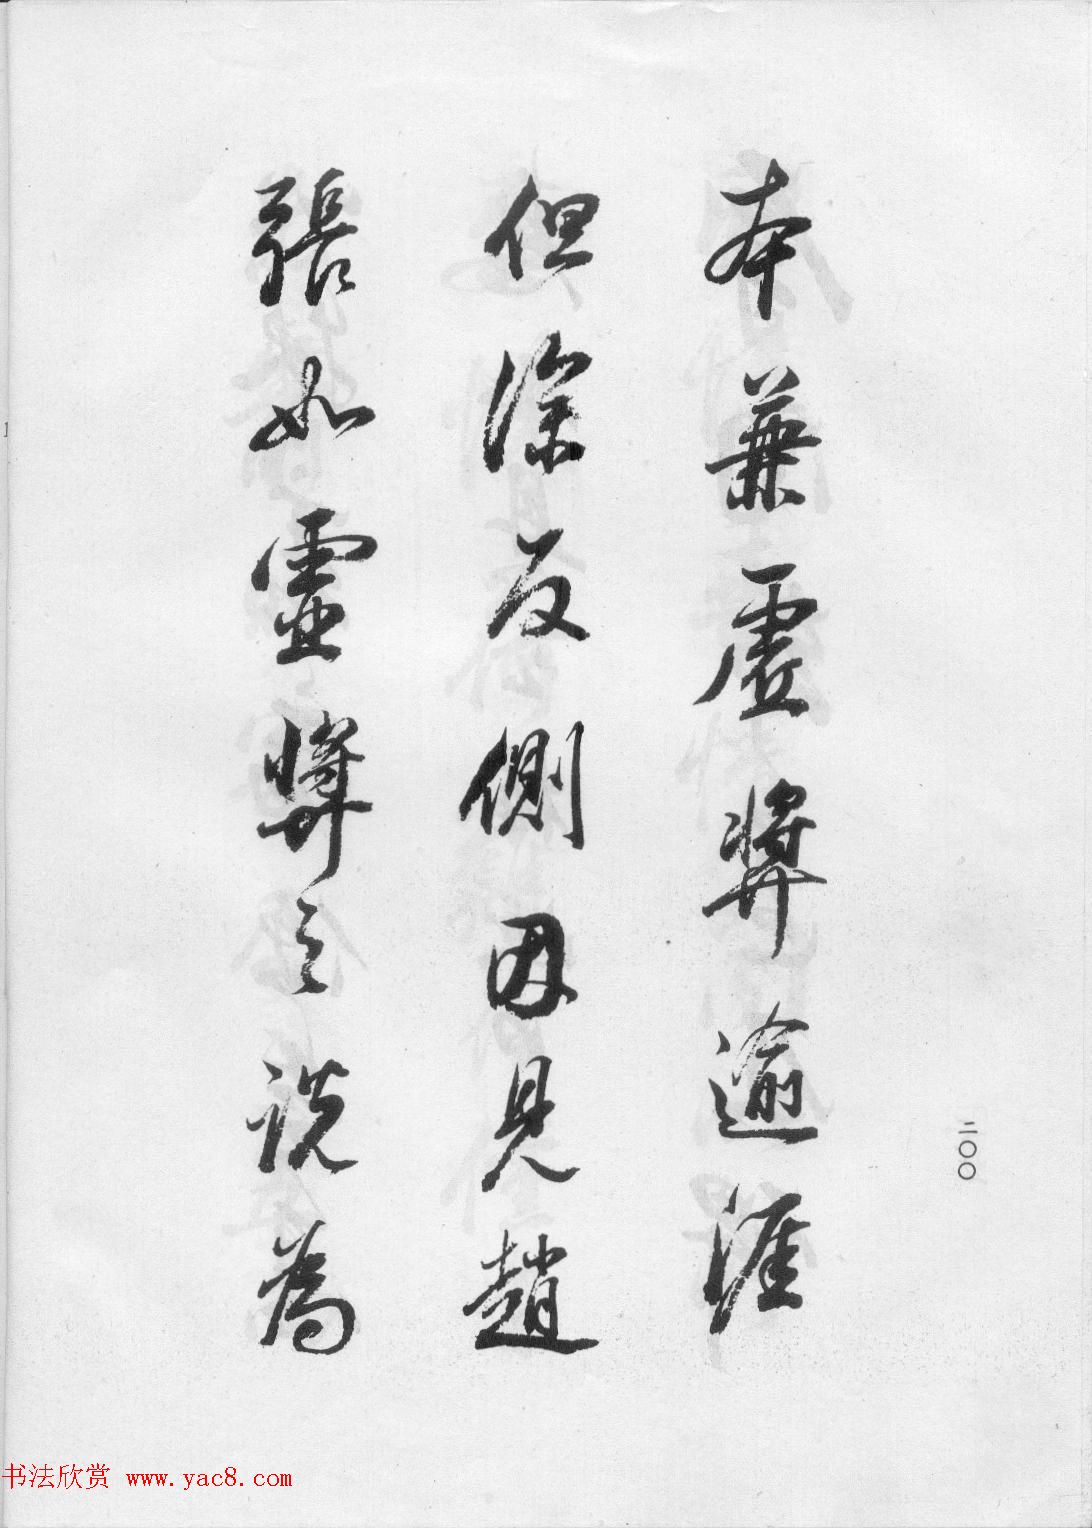 本兼虛奬逾涯
但深反側因見趙
張如靈奬之説為
二〇〇
书法欣赏 www.yac8.com